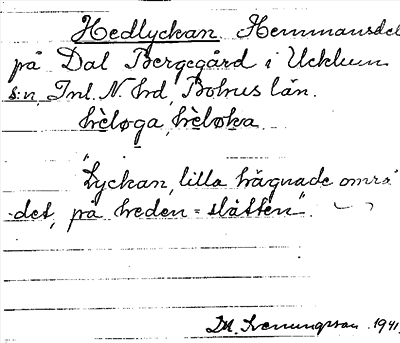 Hedlyckan. Hemmansdel
på Dal Bergegård i Ucklum
s:n, Inl. N. hd, Bohus län.
hèløga, hèløka
"Lyckan, lilla hägnade områ
det, på heden = slätten".
M. Svenungsson. 1941.